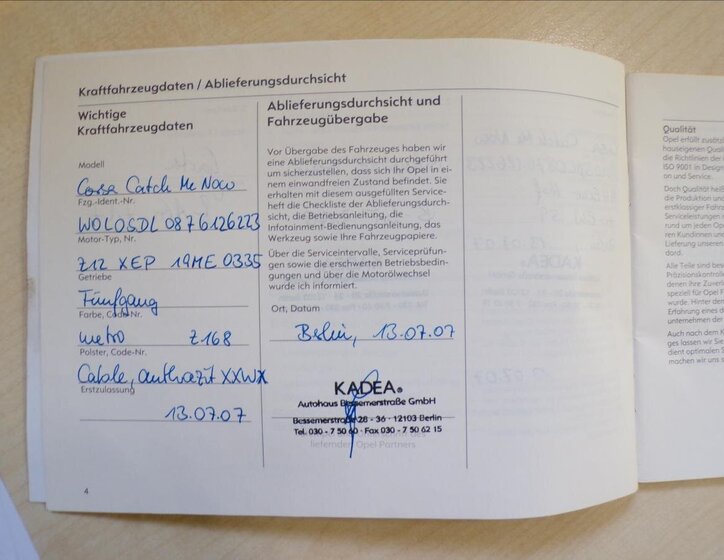 Kraftfahrzeugdaten / Ablieferungsdurchsicht
Wichtige
Kraftfahrzeugdaten
Modell
Corsa Catch Me Now
Fzg.-Ident.-Nr.
W0L0SDL 0876126223
Motor-Typ, Nr.
Z12 XEP 19ME 0335
Getriebe
Fünfgang
Farbe, Code-Nr.
metro Z168
Polster, Code-Nr.
anthrazit XXWX
Erstzulassung
13.07.07
4
Ablieferungsdurchsicht und
Fahrzeugübergabe
Vor Übergabe des Fahrzeuges haben wir
eine Ablieferungsdurchsicht durchgeführt
um sicherzustellen, dass sich Ihr Opel in
einem einwandfreien Zustand befindet. Sie
erhalten mit diesem ausgefüllten Service-
heft die Checkliste der Ablieferungsdurch-
sicht, die Betriebsanleitung, die
Infotainment-Bedienungsanleitung, das
Werkzeug sowie Ihre Fahrzeugpapiere.
Über die Serviceintervalle, Serviceprüfun-
gen sowie die erschwerten Betriebsbedin-
gungen und über die Motorölwechsel
wurde ich informiert.
Ort, Datum
Berlin, 13.07.07
KADEA
Autohaus Bessemerstraße GmbH
Bessemerstraße 28 - 36 · 12103 Berlin
Tel. 030 - 7 50 60 · Fax 030 - 7 50 62 15
liefernden Opel Partners
Qualität
Opel erfüllt zusätz
hauseigenen Qual
die Richtlinien der
ISO 9001 in Design
on und Service.
Doch Qualität hei
die Produktion und
erstklassiger Fahr
Serviceleistungen
rund um jeden Op
len Kundinnen un
Lieferung unsere
dort.
Alle Teile sind bes
Präzisionskontroll
denen Ihre Zuverl
speziell für Opel F
wurde. Hinter den
Erfahrung eines d
unternehmen der
Auch nach dem K
ges lassen wir Sie
dient optimalen S
machen wir uns s